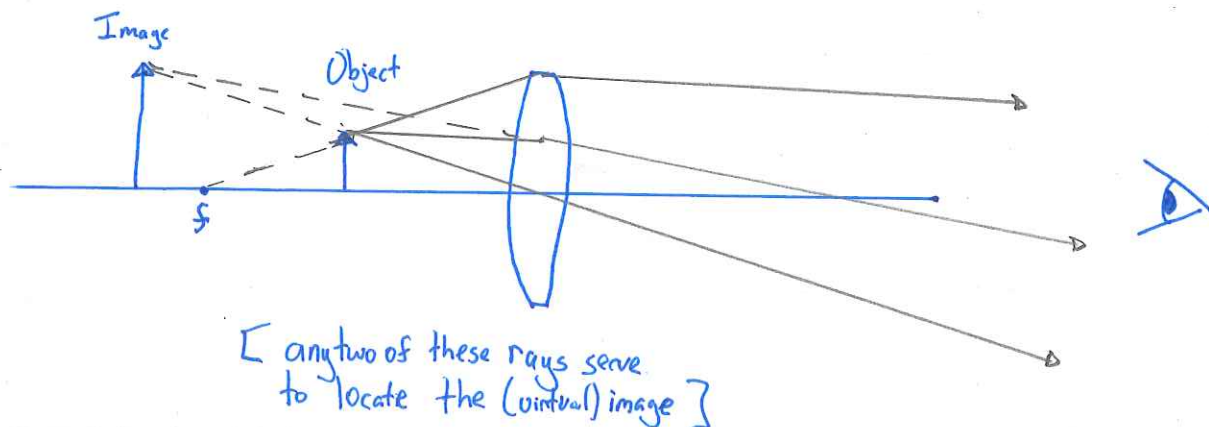 Image
Object
f
[ any two of these rays serve
to locate the (virtual) image ]